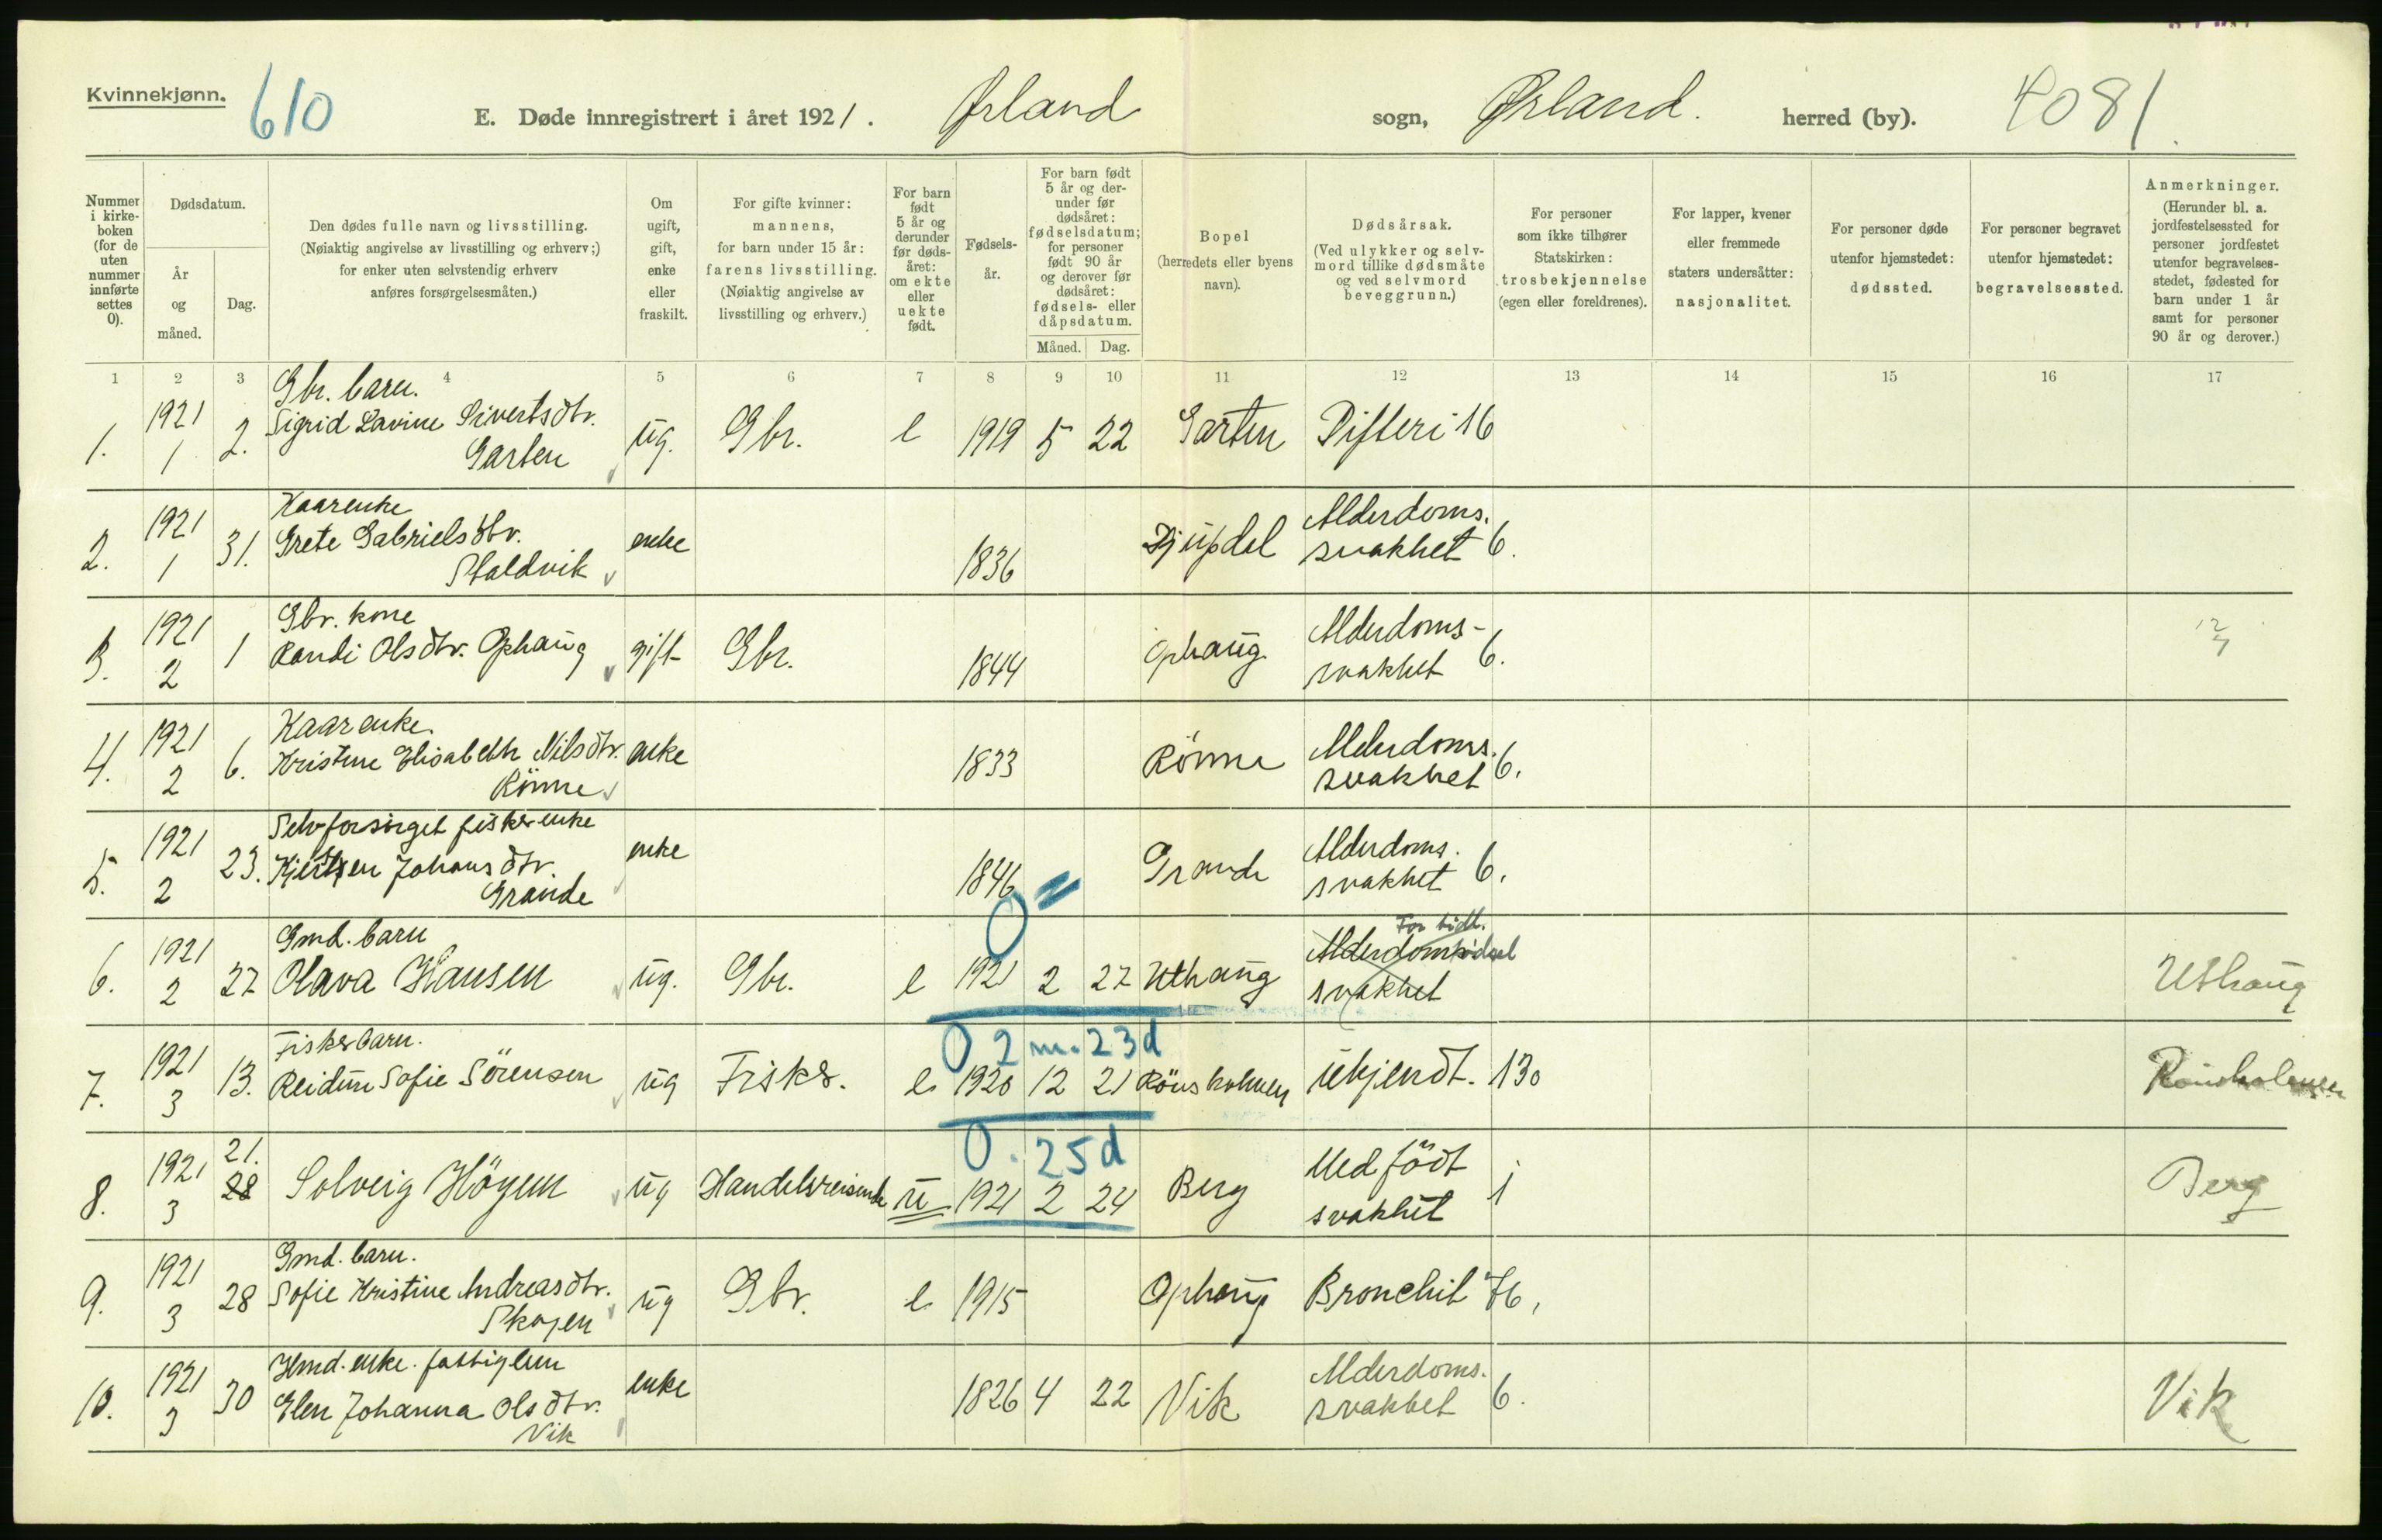 Kvinnekjønn.
610
E. Døde innregistrert i året 1921.
Ørland
sogn,
Ørland.
herred (by).
4081
Nummer i kirke-boken (for de uten nummer innførte settes 0).
Dødsdatum.
År og måned.
Dag.
Den dødes fulle navn og livsstilling.
(Nøiaktig angivelse av livsstilling og erhverv;)
for enker uten selvstendig erhverv
anføres forsørgelsesmåten.)
Om ugift, gift, enke eller fraskilt.
For gifte kvinner: mannens, for barn under 15 år: farens livsstilling.
(Nøiaktig angivelse av livsstilling og erhverv.)
For barn født 5 år og derunder før døds-året: om ekte eller uekte født.
Fødsels-år.
For barn født 5 år og der-under før dødsåret: fødselsdatum; for personer født 90 år og derover før dødsåret: fødsels- eller dåpsdatum.
Måned.
Dag.
Bopel
(herredets eller byens navn).
Dødsårsak.
(Ved ulykker og selv-mord tillike dødsmåte og ved selvmord beveggrunn.)
For personer som ikke tilhører Statskirken: trosbekjennelse (egen eller foreldrenes).
For lapper, kvener eller fremmede staters undersåtter: nasjonalitet.
For personer døde utenfor hjemstedet: dødssted.
For personer begravet utenfor hjemstedet: begravelsessted.
Anmerkninger.
(Herunder bl. a. jordfestelsessted for personer jordfestet utenfor begravelses-stedet, fødested for barn under 1 år samt for personer 90 år og derover.)
1 2 3 4 5 6 7 8 9 10 11 12 13 14 15 16 17
1. 1921 1 2. Gbr. barn. Sigrid Lavine Sivertsdtr. Garten ug. Gbr. e 1919 5 22 Garten Difteri 16
2. 1921 1 31. Kaarenke Grete Gabrielsdtr. Staldvik enke 1836 Djupdal Alderdoms.svakhet 6.
3. 1921 2 1 Gbr. kone Randi Olsdtr. Ophaug gift Gbr. 1844 Ophaug Alderdoms-svakhet 6. 12 7
4. 1921 2 6. Kaarenke. Kristine Elisabeth Nilsdtr. Rönne enke 1833 Rönne Alderdoms.svakhet 6.
5. 1921 2 23. Selvforsörget fiskerenke Johansdtr. Grande enke 1846 Grande Alderdoms.svakhet 6.
6. 1921 2 27 Gmd. barn Olava Hansen ug. Gbr. e 0 1921 2 27 Uthaug Alderdoms svakhet For tidl. födsel Uthaug
7. 1921 3 13. Fiskerbarn. Reidun Sofie Sörensen ug Fisker. e 0 2 m. 23d 1920 12 21 Rönsholmen Ukjendt. 130 Rönsholmen
8. 1921 3 21. 28 Solveig Höyem ug Handelsreisende u 0. 25d 1921 2 24 Berg Medfödt svakhet 1 Berg
9. 1921 3 28 Gmd. barn. Sofie Kristine Andreasdtr. Skogen ug Gbr. e 1915 Ophaug Bronchit 76,
10. 1921 3 30 Hmd. enke. fattiglem Elen Johanna Olsdtr. Vik enke 1826 4 22 Vik Alderdoms.svakhet 6. Vik